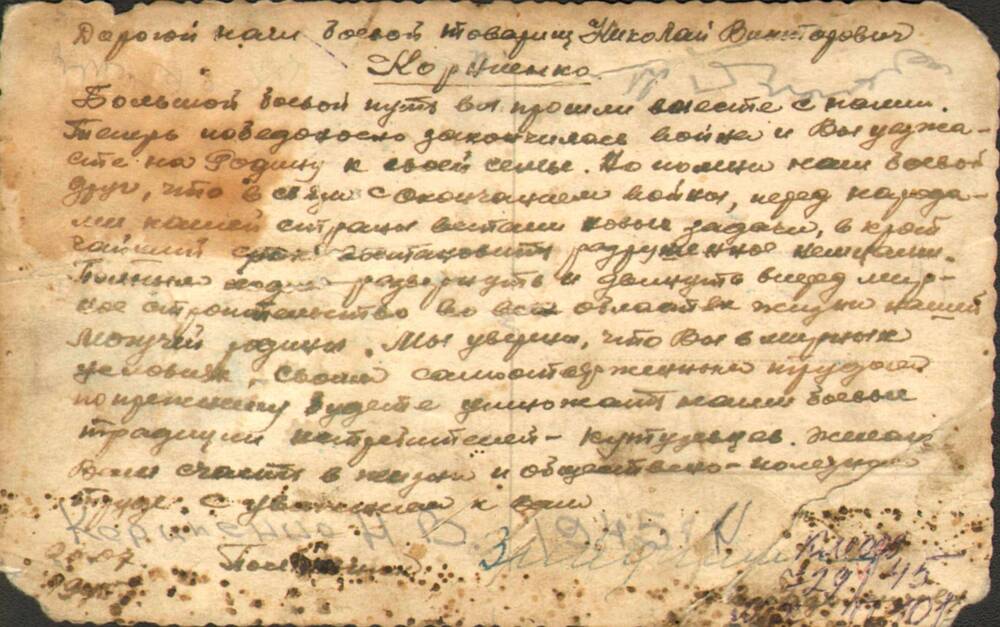 Дорогой наш боевой товарищ Николай Викторович
Корниенко
Большой боевой путь вы прошли вместе с нами.
Теперь победоносно закончилась война и Вы уезжа-
ете на Родину к своей семье. Но помни наш боевой
друг, что в связи с окончанием войны, перед народа-
ми нашей страны встали новые задачи, в крат
чайший срок востановить разрушенное немцами.
Полным ходом развернуть и двинуть вперед мир-
ное строительство во всех областях жизни нашей
могучей родины. Мы уверены, что Вы в мирных
условиях, своим самоотверженным трудом
по прежнему будете умножать наши боевые
традиции истребителей - кутузовцев. Желаем
Вам счастья в жизни и общественно-полезном
труде с уважением к вам
Корниенко Н В. 1945